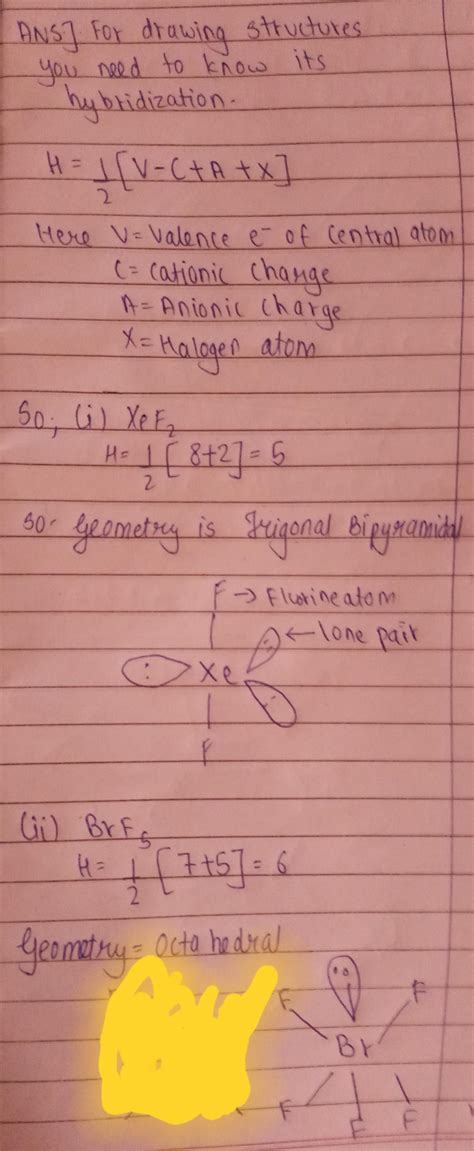 ANS] For drawing structures
you need to know its
hybridization.
H = 1/2 [V-C+A+X]
Here V= Valence e⁻ of Central atom
C= Cationic Charge
A= Anionic Charge
X= Halogen atom
So, (i) XeF₂
H= 1/2 [8+2] = 5
So- Geometry is Trigonal Bipyramidal
F → Fluorine atom
← lone pair
Xe
F
(ii) BrF₅
H= 1/2 [7+5] = 6
Geometry = Octahedral
F F
Br
F F F